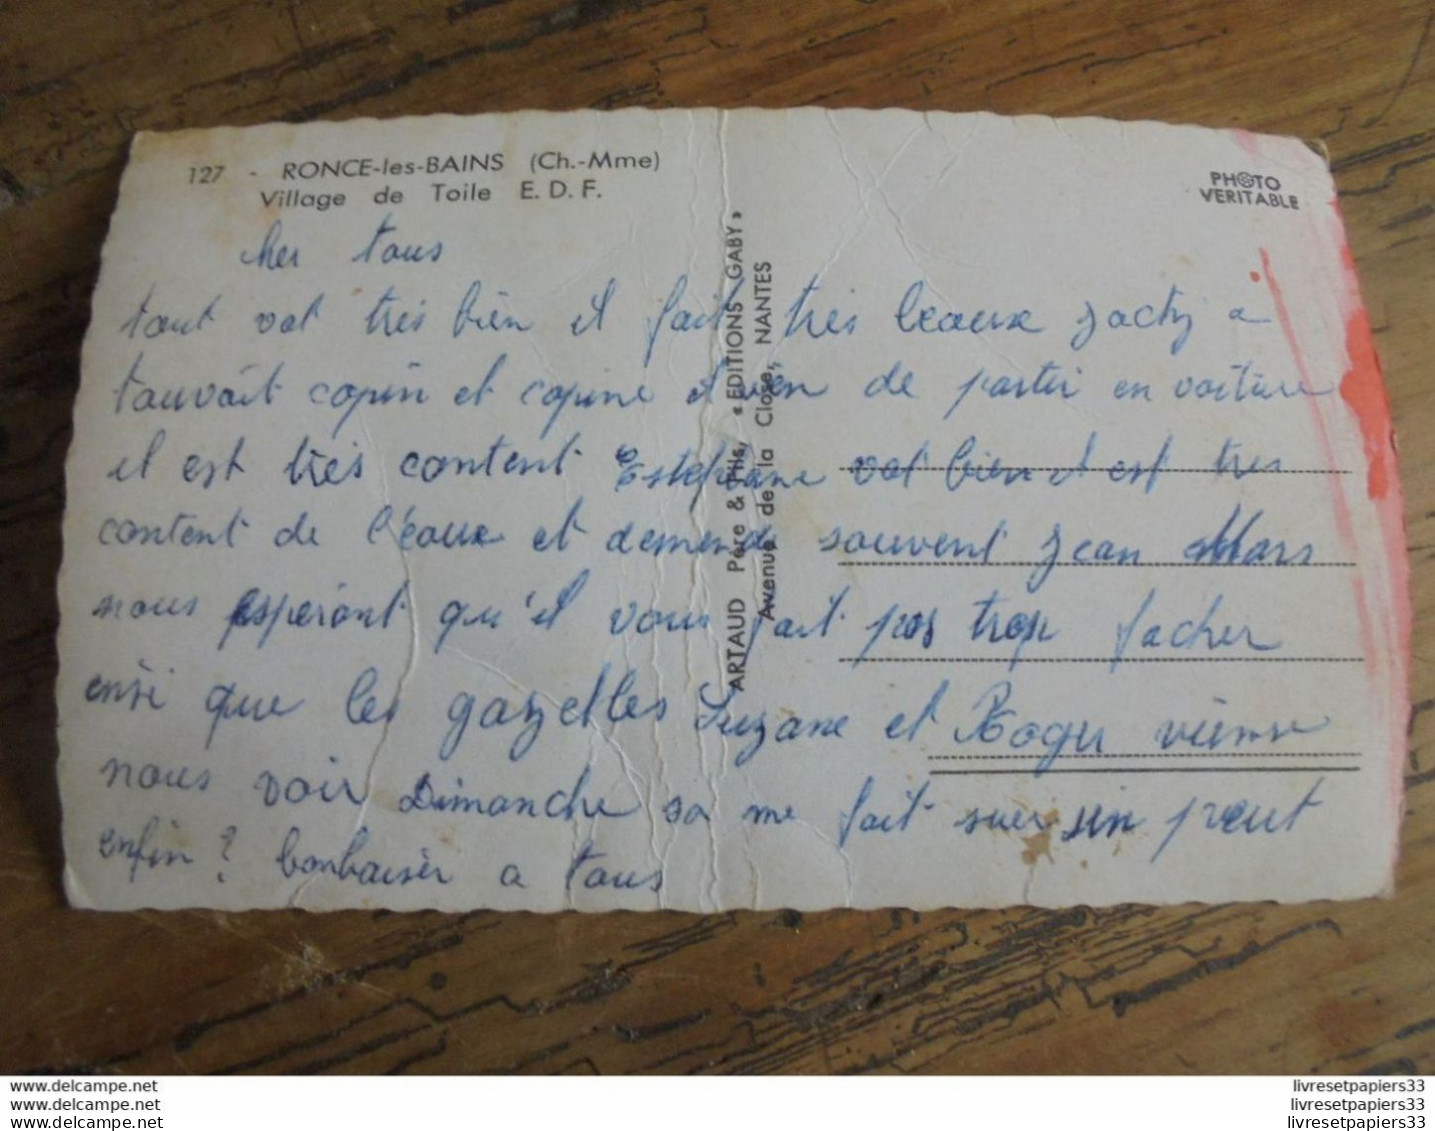 127 - RONCE-les-BAINS (Ch.-Mme)
Village de Toile E. D. F.
PHOTO
VERITABLE
ARTAUD Père & Fils, « EDITIONS GABY »
Avenue de la Close, NANTES
cher tous
tout vat très bien il fait très beaux Jacky a
touvait copin et copine il vien de partir en voiture
il est très content Estephane vat bien il est tres
content de l'eaux et demende souvent Jean Mars
nous esperont qu'il vous fait pas trop facher
ensi que les gazelles Suzane et Roger vienne
nous voir Dimanche sa me fait suer un peut
enfin ? bonbaiser a tous
www.delcampe.net
www.delcampe.net
www.delcampe.net
livresetpapiers33
livresetpapiers33
livresetpapiers33